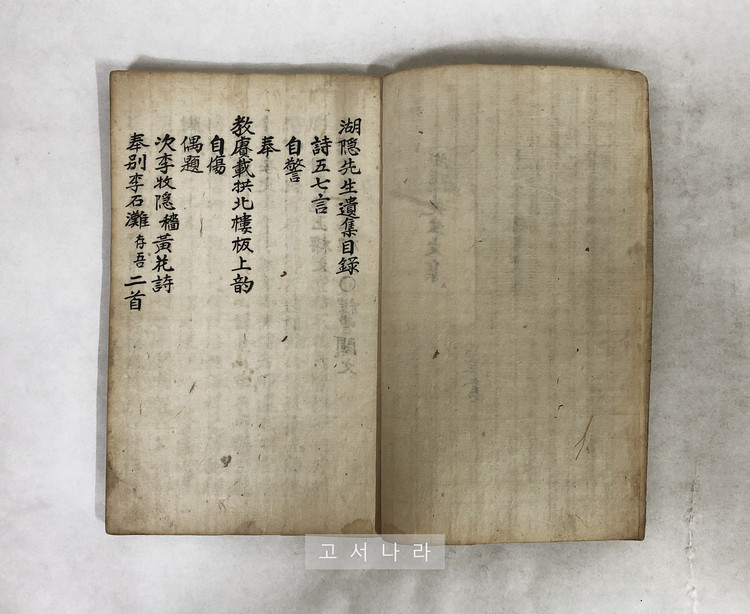 湖隠先生遺集目録
詩五七言
自警
奉
教賡載拱北樓板上韵
自傷
偶題
次李牧隠穡黃花詩
奉別李石灘存吾二首
고서나라